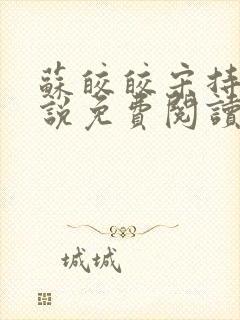 蘇皎皎宋持
說免費閱讀
城城